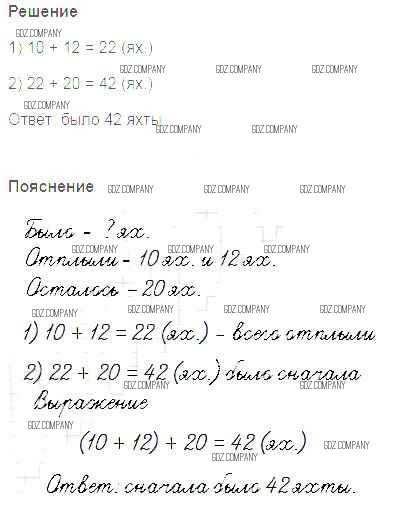 Решение
GDZ.COMPANY
1) 10 + 12 = 22 (ях.)
GDZ.COMPANY GDZ.COMPANY GDZ.COMPANY
2) 22 + 20 = 42 (ях.)
GDZ.COMPANY
Ответ было 42 яхты
GDZ.COMPANY GDZ.COMPANY
Пояснение GDZ.COMPANY GDZ.COMPANY GDZ.COMPANY
Было - ? ях.
GDZ.COMPANY GDZ.COMPANY GDZ.COMPANY
Отплыли - 10 ях. и 12 ях.
Осталось - 20 ях.
GDZ.COMPANY GDZ.COMPANY GDZ.COMPANY GDZ.COMPANY
1) 10 + 12 = 22 (ях.) - всего отплыли
GDZ.COMPANY GDZ.COMPANY GDZ.COMPANY
2) 22 + 20 = 42 (ях.) было сначала
GDZ.COMPANY GDZ.COMPANY
Выражение
GDZ.COMPANY
(10 + 12) + 20 = 42 (ях.) GDZ.COMPANY
GDZ.COMPANY
Ответ. сначала было 42 яхты.
GDZ.COMPANY GDZ.COMPANY